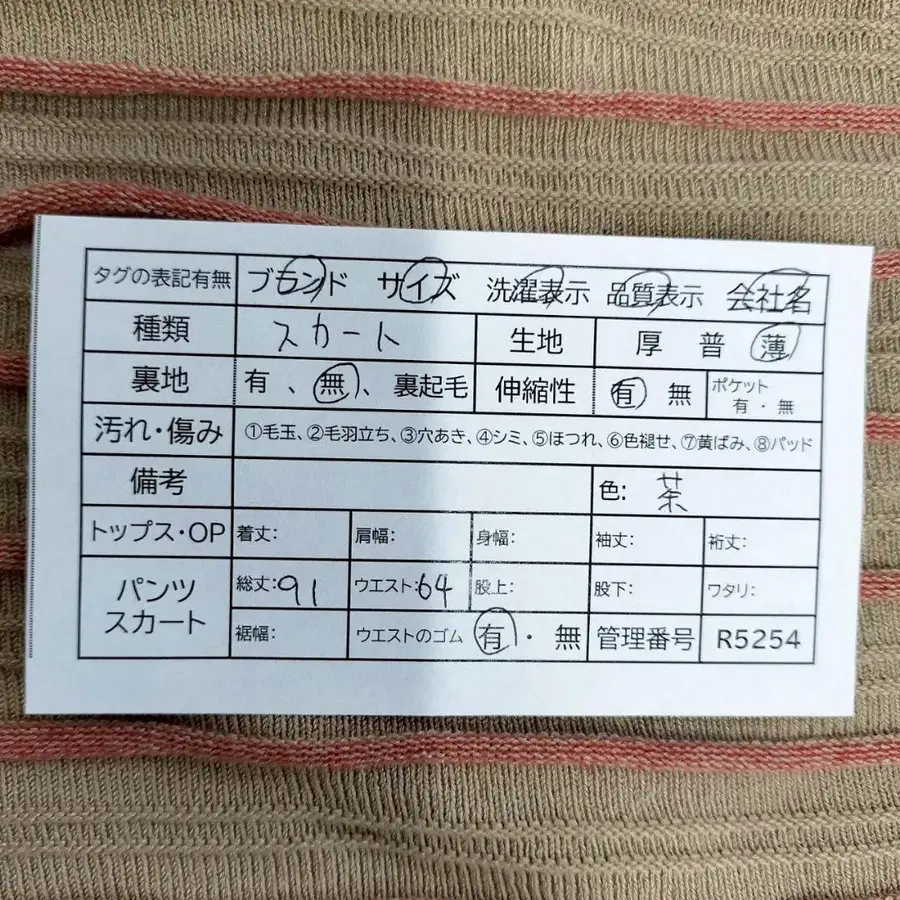 タグの表記有無 ブランド サイズ 洗濯表示 品質表示 会社名
種類 スカート 生地 厚 普 薄
裏地 有 、 無 、 裏起毛 伸縮性 有 無 ポケット 有 ・ 無
汚れ・傷み ①毛玉、②毛羽立ち、③穴あき、④シミ、⑤ほつれ、⑥色褪せ、⑦黄ばみ、⑧パッド
備考 色: 茶
トップス・OP 着丈: 肩幅: 身幅: 袖丈: 裄丈:
パンツ スカート 総丈:91 ウエスト:64 股上: 股下: ワタリ:
裾幅: ウエストのゴム 有 ・ 無 管理番号 R5254